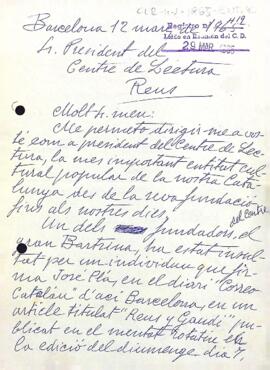 Barcelona 12 març de 196
Registro n.º
29 MAR
Sr. President del
Centre de Lectura
Reus
Molt Sr. meu:
Me permeto dirigir-me a vos-
tè com a president del Centre de Lec-
tura, la mes important entitut cul-
tural popular de la nostra Cata-
lunya des de la seva fundació
fins als nostres dies.
Un dels fundadors, el del Centre
gran Bartrina, ha estat insul-
tat per un individuu que fir-
ma José Plá, en el diari "Correo
Catalán" d'aci Barcelona, en un
article titulat "Reus y Gaudí" pu-
blicat en el mentat rotatiu en
la edició del diumenge dia 7,